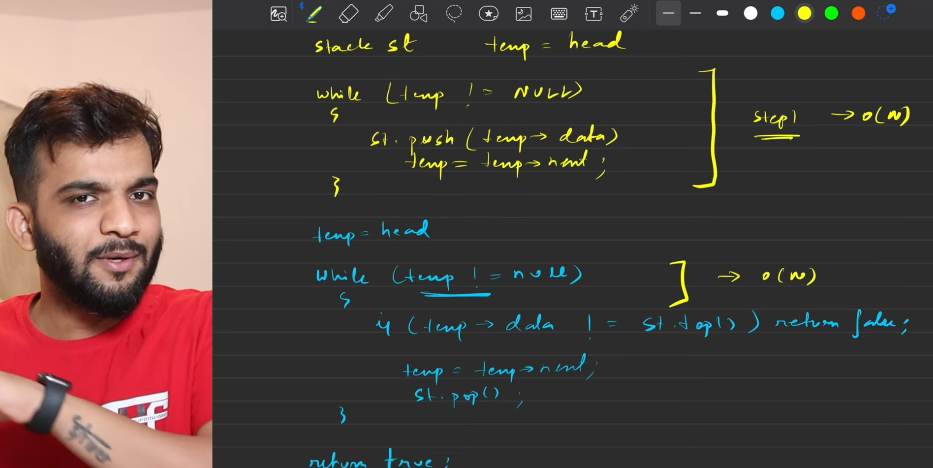 stack st temp = head
while (temp != NULL)
{
st.push(temp→data)
temp = temp→next;
}
step1 → O(N)
temp = head
while (temp != null)
{
→ O(N)
if (temp→data != st.top()) return false;
temp = temp→next;
st.pop();
}
return true;